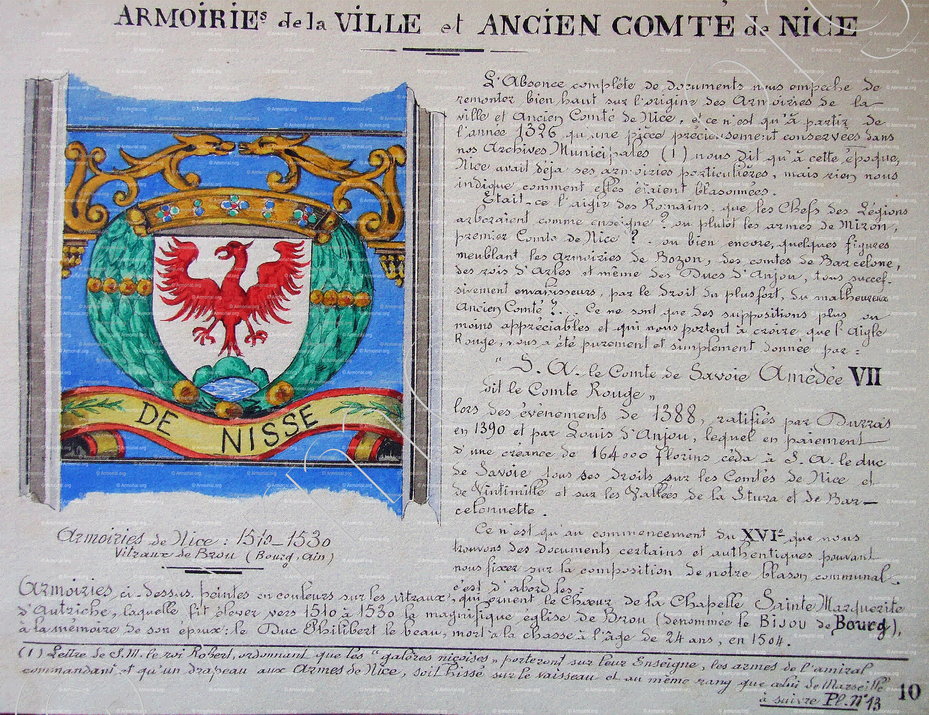 ARMOIRIEs de la VILLE et ANCIEN COMTÉ de NICE
L'Absence complète de documents nous empeche de
remonter bien haut sur l'origine des Armoiries de la
ville et Ancien Comté de Nice, et ce n'est qu'à partir de
l'année 1326 qu'une pièce précieusement conservées dans
nos Archives Municipales (1) nous dit qu'à cette époque,
Nice avait déja ses armoiries particulières, mais rien nous
indique comment elles étaient blasonnées.
Etait-ce l'aigle des Romains, que les Chefs des Légions
arboraient comme enseigne? ou plutot les armes de Miron,
premier Comte de Nice? - ou bien encore, quelques figures
meublant les armoiries de Bozon, des comtes de Barcelone,
des rois d'Arles et même des Ducs d'Anjou, tous succes-
sivement envahisseurs, par le droit du plus fort, du malheureux
Ancien Comté?... Ce ne sont que des suppositions plus ou
moins appréciables et qui nous portent à croire, que l'Aigle
Rouge, nous a été purement et simplement donnée par:
" S. A. le Comte de Savoie Amédée VII
dit le Comte Rouge "
lors des évenements de 1388, ratifiés par Durras
en 1390 et par Louis d'Anjou, lequel en paiement
d'une créance de 164000 florins céda à S. A. le duc
de Savoie tous ses droits sur les Comtés de Nice et
de Vintimille et sur les Vallées de la Stura et de Bar-
celonnette.
Ce n'est qu'au commencement du XVIe que nous
trouvons des documents certains et authentiques pouvant
nous fixer sur la composition de notre blason communal.
c'est d'abord les:
DE NISSE
Armoiries de Nice: 1510-1530
Vitraux de Brou (Bourg, Ain)
Armoiries, ci-dessus, peintes en couleurs sur les vitraux, qui ornent le Choeur de la Chapelle Sainte Marguerite
d'Autriche, laquelle fit élever vers 1510 à 1530 la magnifique église de Brou (dénommée le Bijou de Bourg),
à la mémoire de son époux: le Duc Philibert le beau, mort à la chasse à l'âge de 24 ans, en 1504.
(1) Lettre de S.M. le roi Robert, ordonnant que les "galères niçoises" porteront sur leur Enseigne, les armes de l'amiral
commandant, et qu'un drapeau aux Armes de Nice, soit hissé sur le vaisseau et au même rang que celui de Marseille
à suivre Pl. N° 13
10
© Armorial.org